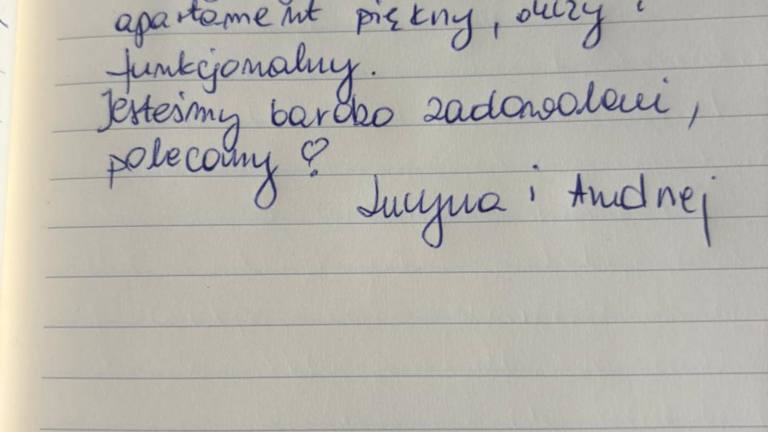 apartament piękny, duży i
funkcjonalny.
Jesteśmy bardzo zadowoleni,
polecamy
Lucyna i Andrzej